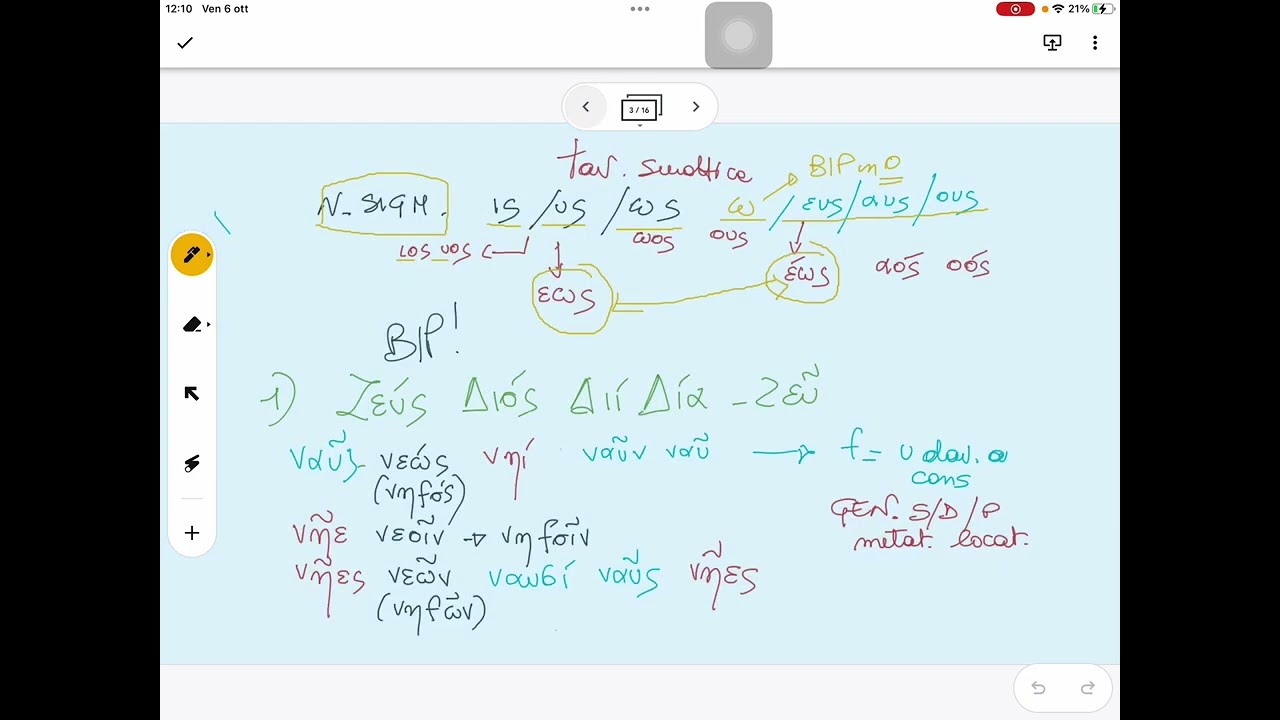 12:10 Ven 6 ott
21%
3 / 16
tav. sinottica BIP in O
N. SIGM. ις / υς / ως ω / ευς / αυς / ους
ιος υος ωος ους
εως έως αός οός
BIP!
1) Ζεύς Διός Διί Δία - Ζεῦ
ναῦς νεώς νηί ναῦν ναῦ → f = υ dav. a
(νηfός) cons
GEN. S/D/P
νῆε νεοῖν → νηfοῖν metat. locat.
νῆες νεῶν ναυσί ναῦς νῆες
(νηfῶν)